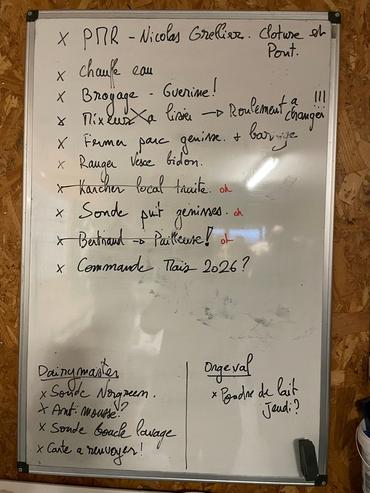 x PMR - Nicolas Grellier. Cloture et
Pont.
x Chauffe eau
x Broyage - Guerine!
x Mixeur a lisier → Roulement a changer !!!
x Fermer parc genisse + barrage
x Ranger vesce bidon.
x Karcher local traite. ok
x Sonde puit genisses. ok
x Bertrand → Pailleuse! ok
x Commande Maïs 2026?
Dairymaster
x Sonde Norgreen.
x Anti mousse!?
x Sonde boucle lavage
x Carte a renvoyer!
Orgeval
x Poudre de lait
Jeudi?